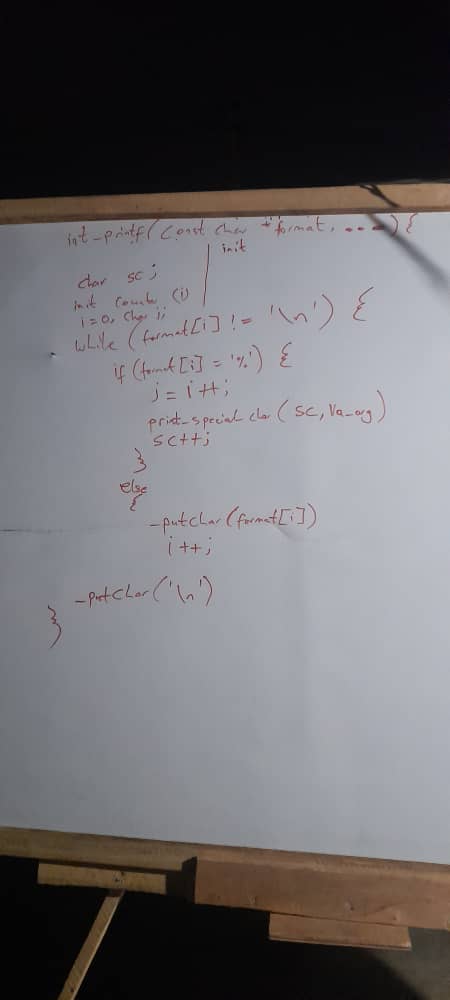 int _printf(const char *format, ...) {
init
char sc;
init counter (i)
i=0, char j;
while (format[i] != '\n') {
if (format[i] = '%') {
j = i++;
print_special char (sc, va_arg)
sc++;
}
else
{
_putchar(format[i])
i++;
_putchar('\n')
}